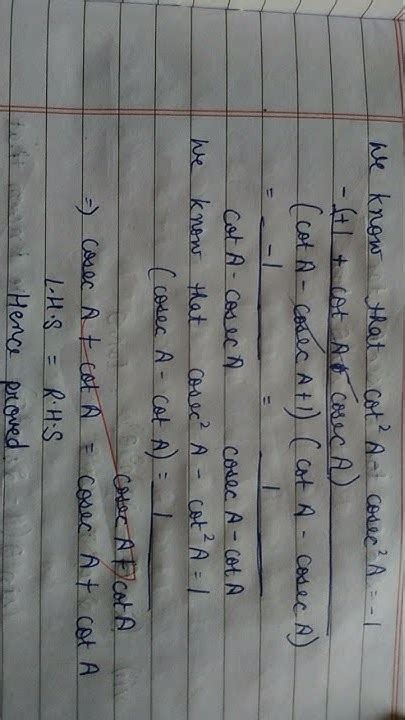 We know that cot²A - cosec²A = -1
-(+1 + cot A - cosec A)
(cot A - cosec A+1) (cot A - cosec A)
= -1 = 1
cot A - cosec A cosec A - cot A
We know that cosec²A - cot²A = 1
(cosec A - cot A) = 1
cosec A + cot A
=) cosec A + cot A = cosec A + cot A
L.H.S = R.H.S
Hence proved